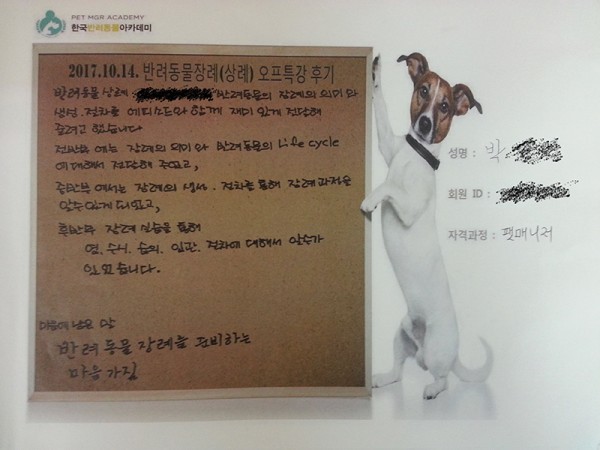 PET MGR ACADEMY
한국반려동물아카데미
2017.10.14. 반려동물장례(상례) 오프특강 후기
반려동물 상례 반려동물의 장례의 의미와
생성. 절차를 에피소드와 함께 재미있게 전달해
줄려고 했습니다
전반부에는 장례의 의미와 반려동물의 Life cycle
에 대해서 전달해 주었고,
중반부에서는 장례의 절차를 통해 장례과정을
알수있게 되었고,
후반부 장례 실습을 통해
염. 수시. 습의. 입관. 절차에 대해서 알수가
있었습니다.
마음에 남은 말
반려동물 장례를 준비하는
마음가짐
성명 : 박
회원 ID :
자격과정 : 펫매니저